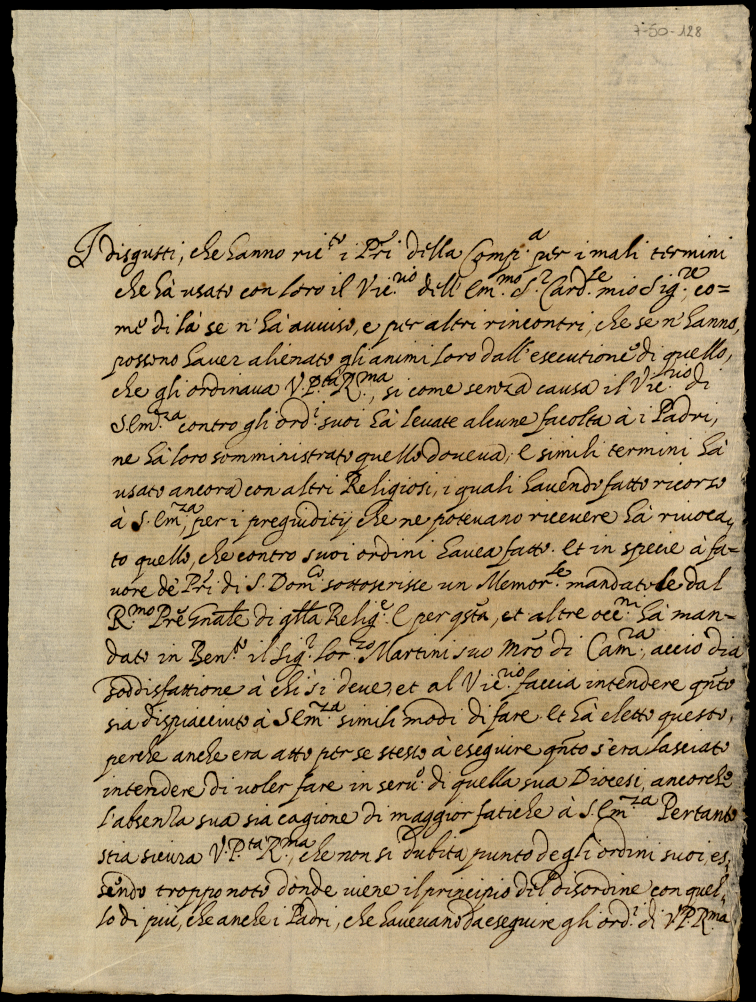 7-50-128
I disgusti, che hanno ric.to i P̃ri della Comp.a per i mali termini
che hà usato con loro il Vic.rio dell'Em.mo S.r Card.le mio Sig.re, co=
me di là se n'hà auuiso, e per altri rincontri, che se n'hanno,
possono hauer alienato gli animi loro dall'esecutione di quello,
che gli ordinaua V.P.tà R.ma, si come senza causa il Vic.rio di
S.Em.za contro gli ord.i suoi hà leuate alcune facoltà à i Padri,
ne hà loro somministrato quello doueua; e simili termini hà
usato ancora con altri Religiosi, i quali hauendo fatto ricorso
à S.Em.za, per i pregiuditij che ne poteuano riceuere hà riuoca=
to quello, che contro suoi ordini hauea fatto. Et in specie à fa=
uore de' P̃ri di S. Dom.co sottoscrisse un Memor.le mandatole dal
R.mo P̃re Gñale di q̃lla Relig.e E per q̃sta, et altre occ.ni hà man=
dato in Ben.to il Sig.r Lor.zo Martini suo Mr̃o di Cam.ra, acciò dia
soddisfattione à chi si deue, et al Vic.rio faccia intendere q̃nto
sia dispiacciuto à S.Em.za simili modi di fare. Et hà eletto questo,
perche anche era atto per se stesso à eseguire q̃nto s'era lasciato
intendere di uoler fare in seru.o di quella sua Diocesi, ancorche
l'absenza sua sia cagione di maggior fatiche à S.Em.za Pertanto
stia sicura V.P.tà R.ma, che non si dubita punto degli ordini suoi, es=
sendo troppo noto donde uiene il principio del disordine con quel=
lo di più, che anche i Padri, che haueuano da eseguire gli ord.i di V.P.R.ma